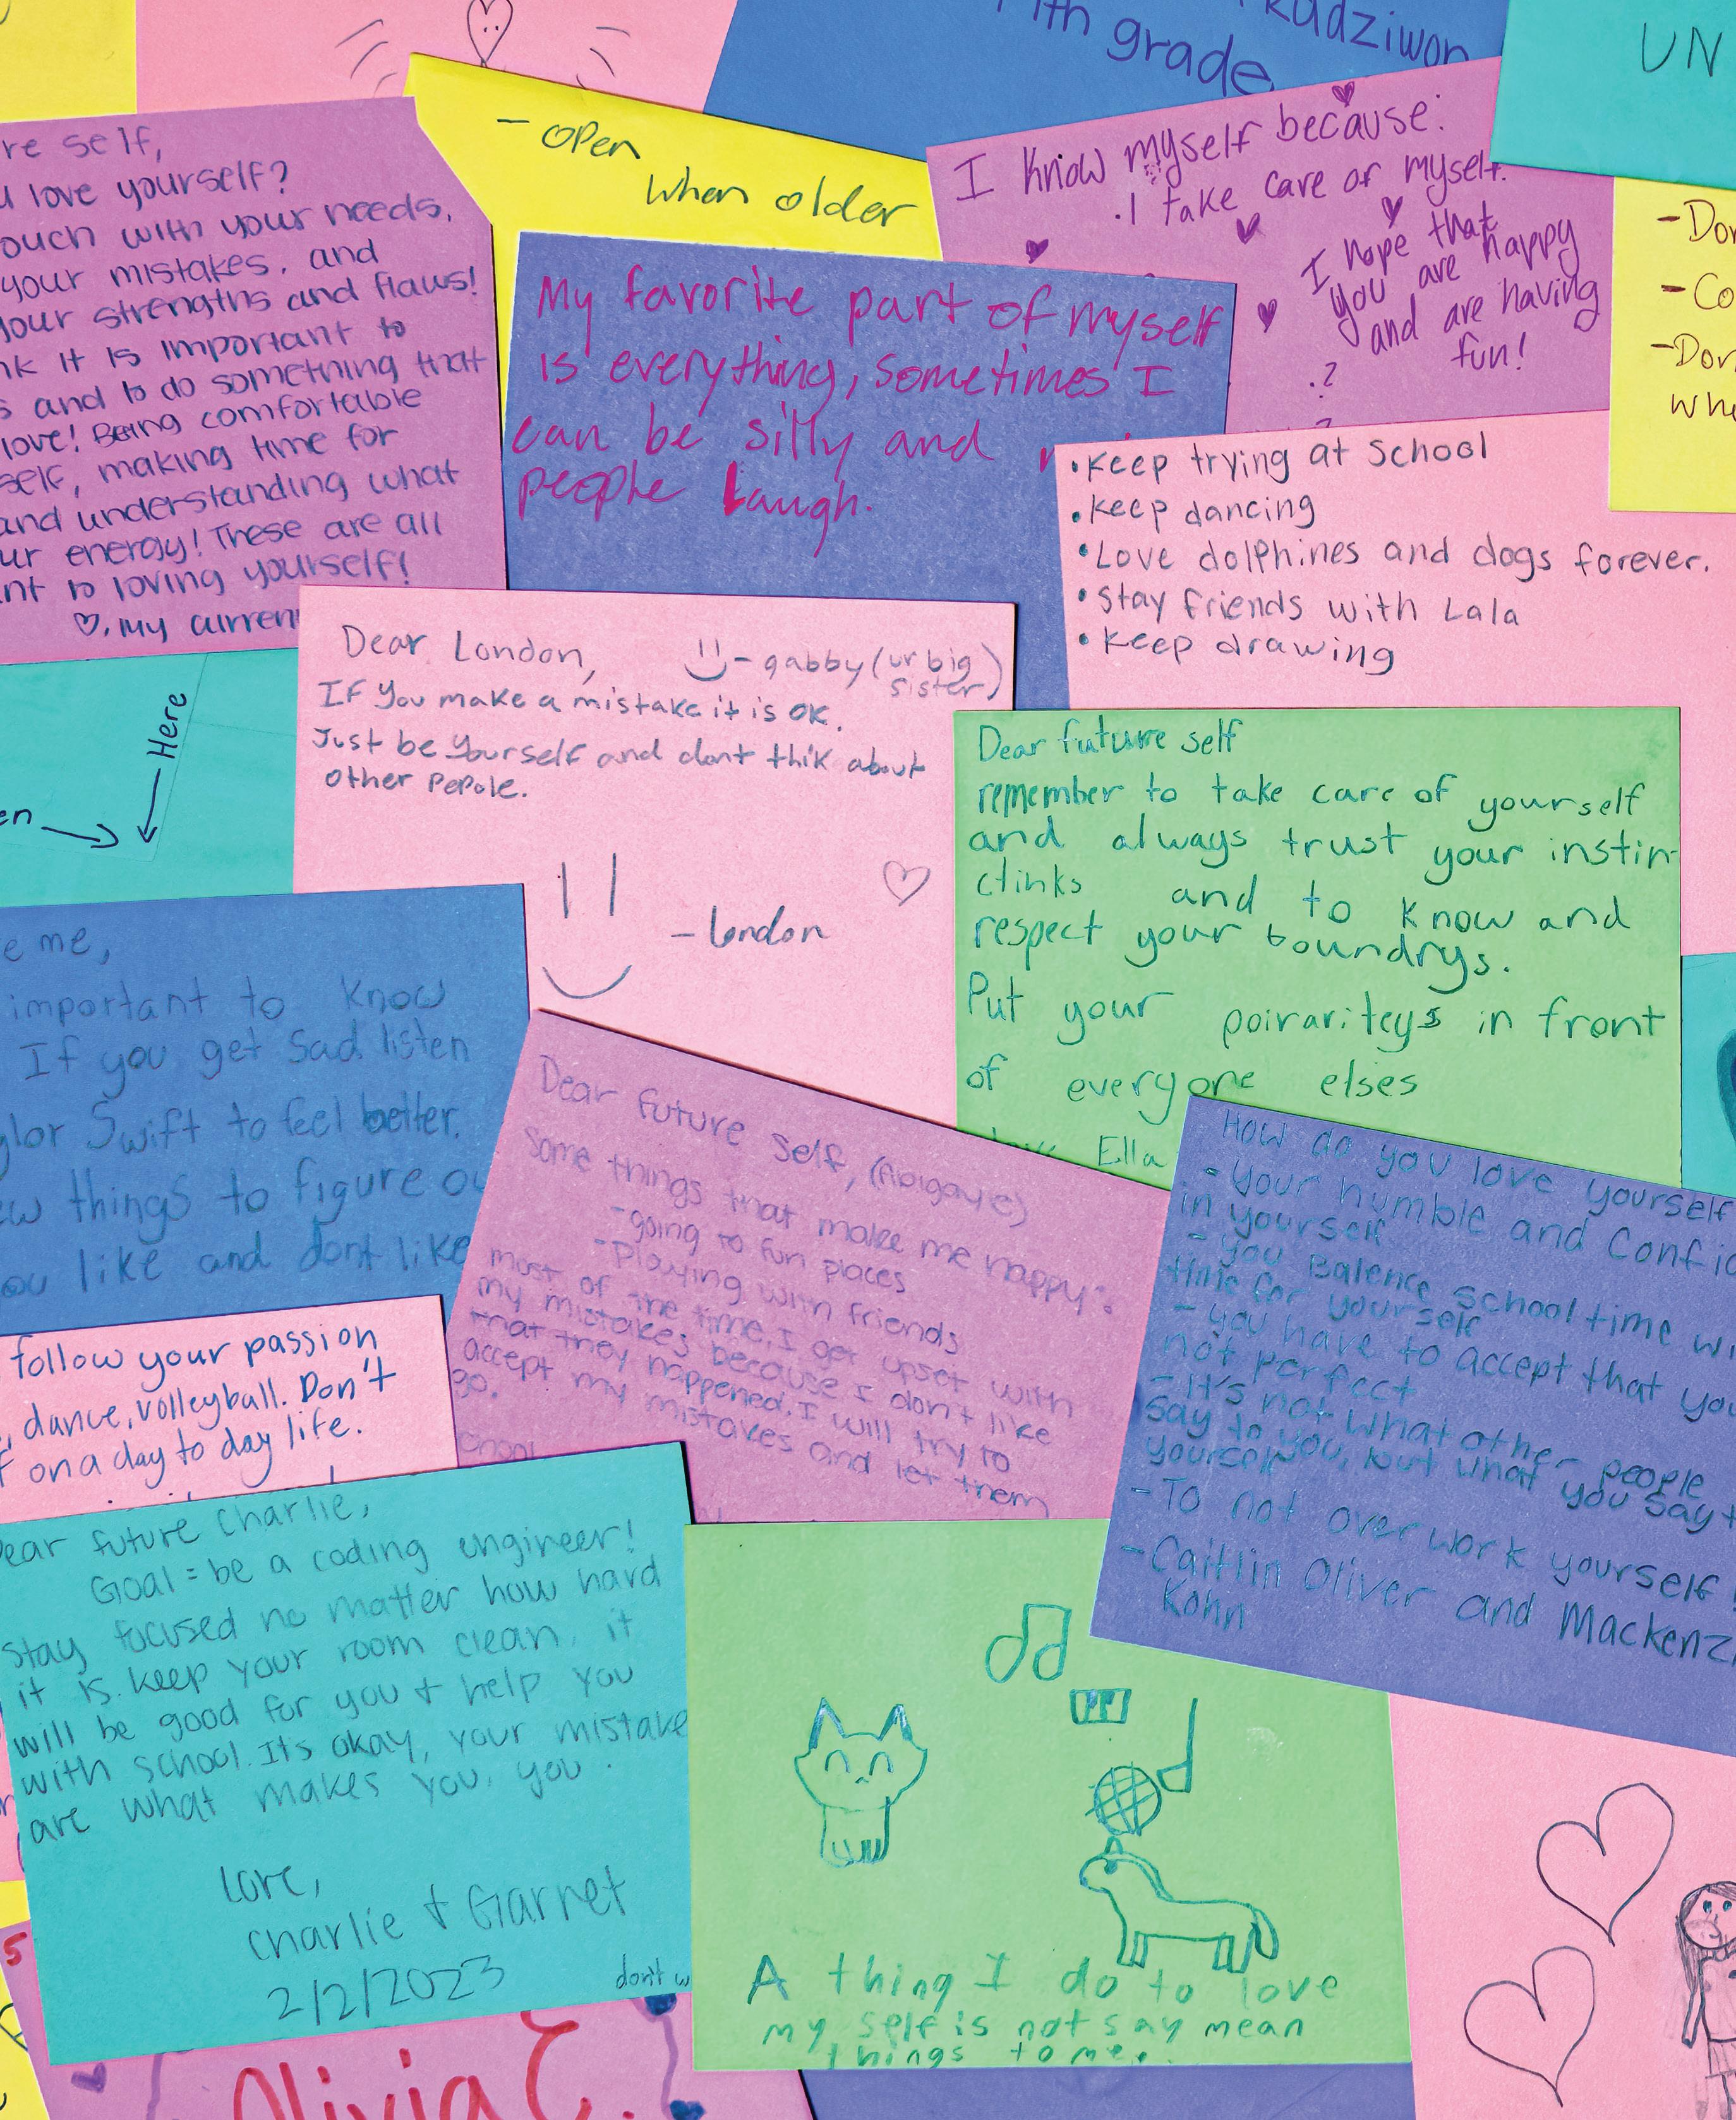 kudziwon
7th grade
UN
- open
when older
I know myself because:
. I take care of myself.
I hope that
you are happy
and are having
fun!
.?
- Don
- Co
- Don
whe
re self,
u love yourself?
ouch with your needs,
your mistakes, and
your strengths and flaws!
nk it is important to
s and to do something that
love! Being comfortable
self, making time for
and understanding what
ur energy! These are all
nt to loving yourself!
♡, my curren
My favorite part of myself
is everything, sometimes I
can be silly and
people Laugh.
• Keep trying at School
• Keep dancing
• Love dolphines and dogs forever.
• Stay friends with Lala
• Keep drawing
← Here
en →
Dear London,
- gabby (ur big
sister)
IF You make a mistake it is OK.
Just be Yourself and dont thik about
other pepole.
- london
Dear future self
remember to take care of yourself
and always trust your instin-
ctinks and to know and
respect your boundrys.
Put your poirariteys in front
of everyone elses
love Ella
e me,
important to know
If you get Sad listen
ylor Swift to feel better.
ew things to figure ou
ou like and dont like
Dear future self, (Abigaye)
Some things that make me happy:
- going to fun places
- Playing with friends
most of the time, I get upset with
my mistakes because I don't like
that they happened. I will try to
accept my mistakes and let them
go.
How do you love yourself
- Your humble and Confid
in yourself
- You Balence school time wi
time for yourself
- you have to accept that you
not perfect
- It's not what other people
say to you, but what you say t
yourself
- To not over work yourself
- Caitlin Oliver and Mackenzi
Kohn
follow your passion
, dance, volleyball. Don't
f on a day to day life.
Dear future Charlie,
Goal = be a coding engineer!
stay focused no matter how hard
it is. keep your room clean, it
will be good for you + help you
with school. Its okay, your mistake
are what makes you, you.
Love,
Charlie + Garret
2/2/2023
don't w
A thing I do to love
my self is not say mean
things to me.
5
Olivia C.